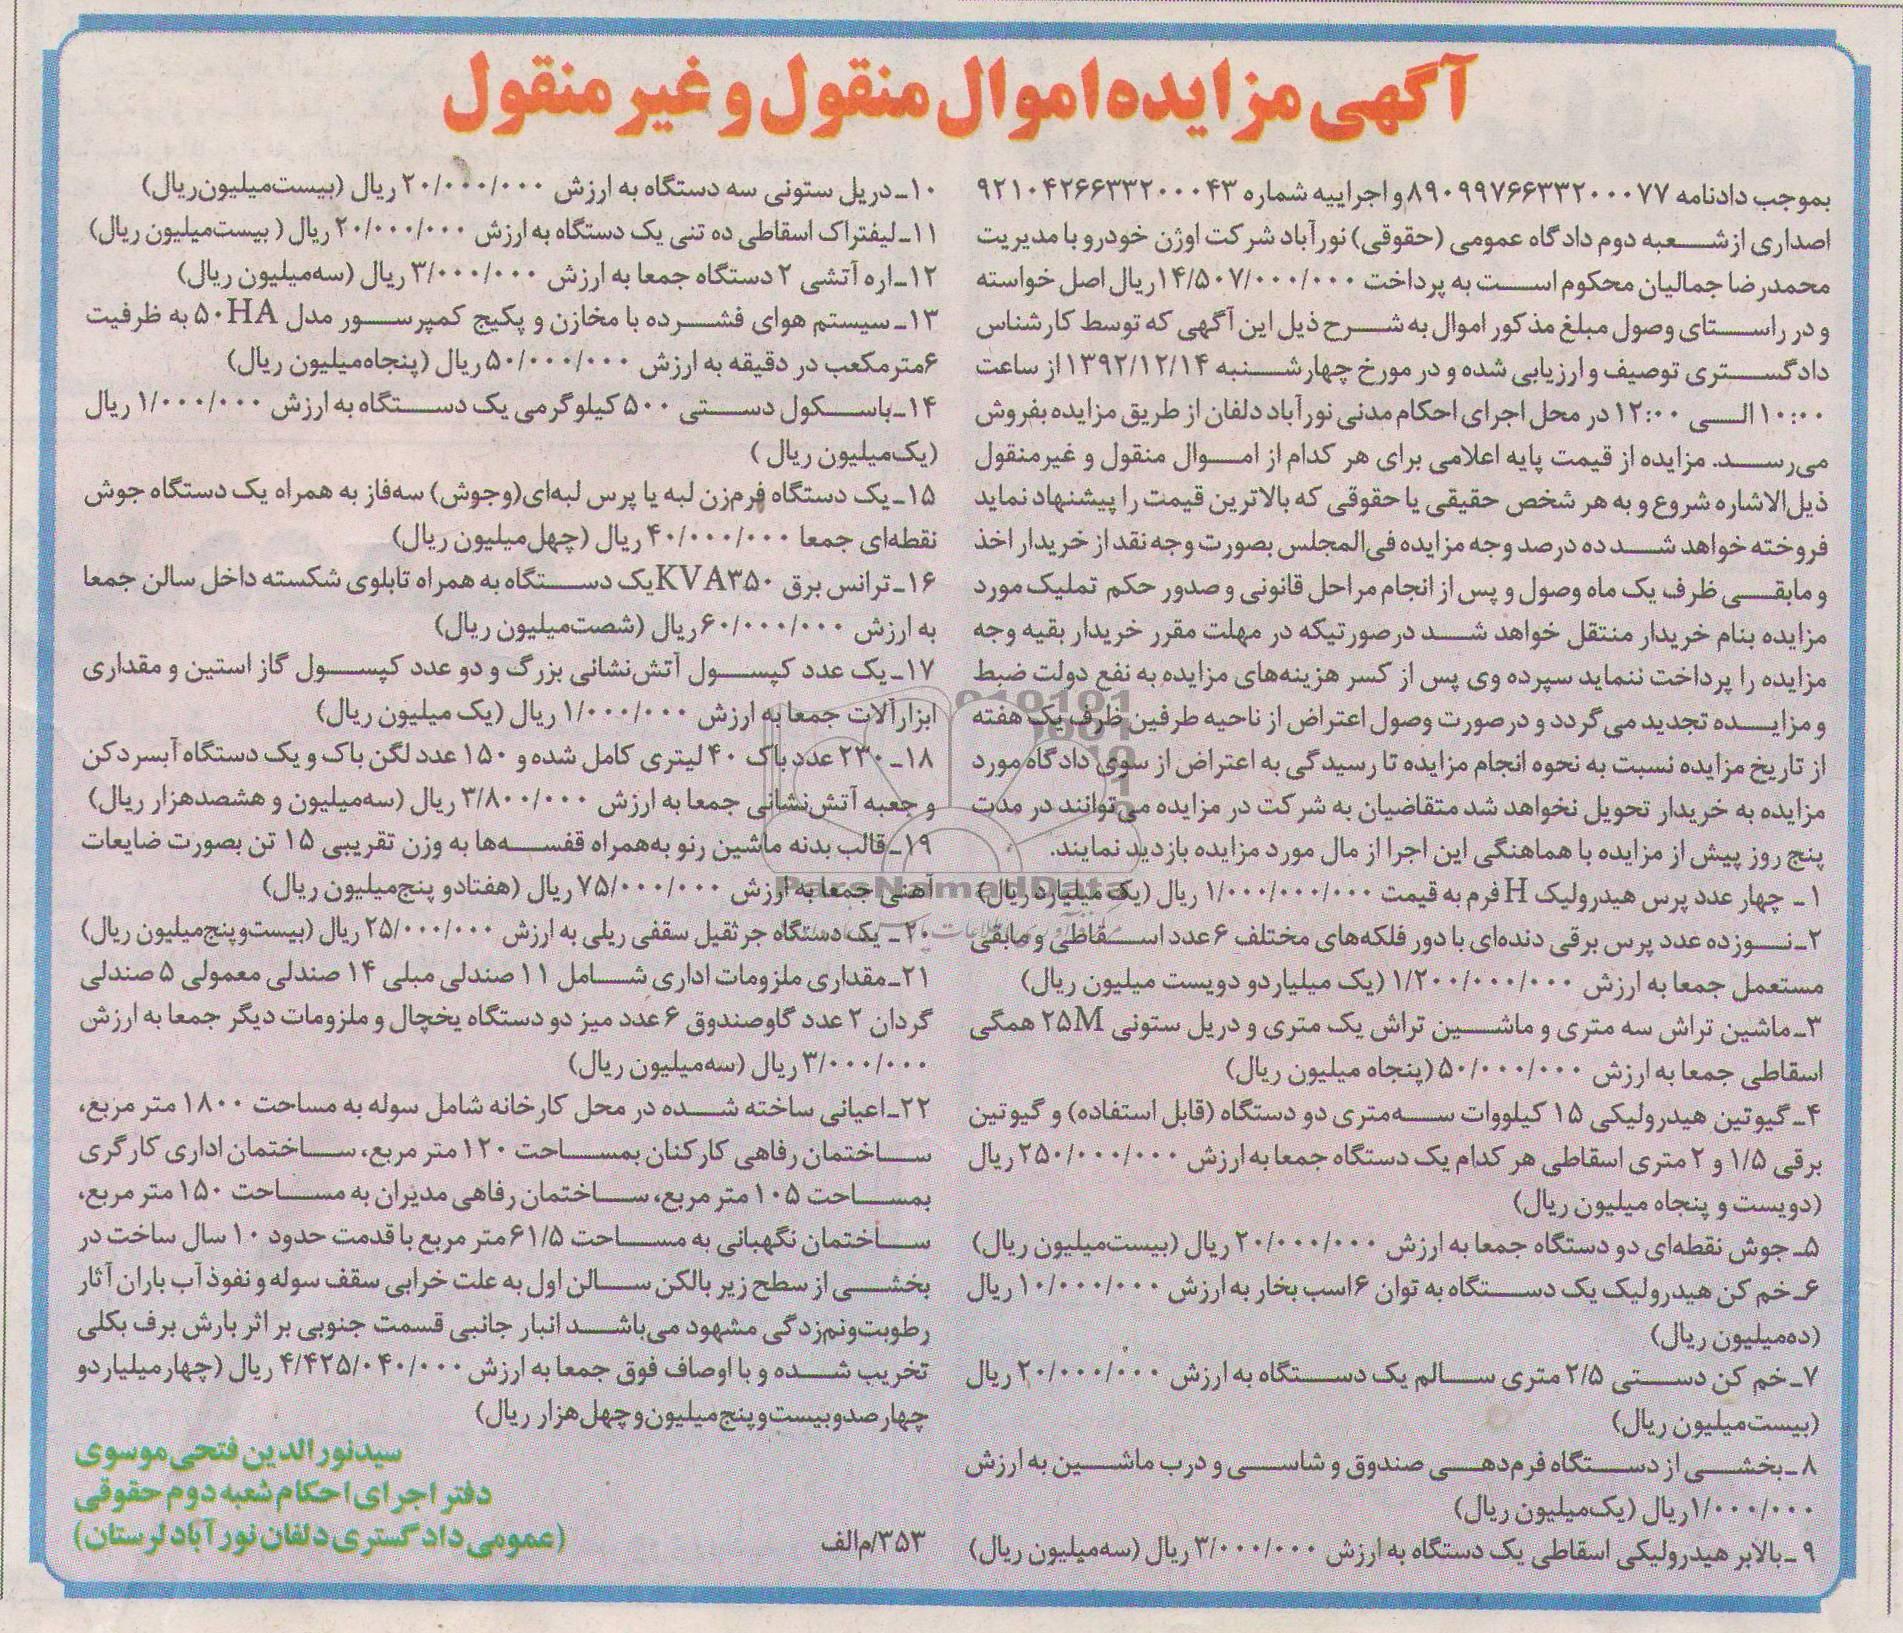 آگهی مزایده اموال منقول و غیر منقول
بموجب دادنامه ۸۹۰۹۹۷۶۶۳۳۲۰۰۰۷۷ و اجراییه شماره ۹۲۱۰۴۲۶۶۳۳۲۰۰۰۴۳
اصداری ازشعبه دوم دادگاه عمومی (حقوقی) نورآباد شرکت اوژن خودرو با مدیریت
محمدرضا جمالیان محکوم است به پرداخت ۱۴/۵۰۷/۰۰۰/۰۰۰ریال اصل خواسته
و در راستای وصول مبلغ مذکور اموال به شرح ذیل این آگهی که توسط کارشناس
دادگستری توصیف و ارزیابی شده و در مورخ چهارشنبه ۱۳۹۲/۱۲/۱۴ از ساعت
۱۰:۰۰ الی ۱۲:۰۰ در محل اجرای احکام مدنی نورآباد دلفان از طریق مزایده بفروش
می‌رسد. مزایده از قیمت پایه اعلامی برای هر کدام از اموال منقول و غیرمنقول
ذیل‌الاشاره شروع و به هر شخص حقیقی یا حقوقی که بالاترین قیمت را پیشنهاد نماید
فروخته خواهد شد ده درصد وجه مزایده فی‌المجلس بصورت وجه نقد از خریدار اخذ
و مابقی ظرف یک ماه وصول و پس از انجام مراحل قانونی و صدور حکم تملیک مورد
مزایده بنام خریدار منتقل خواهد شد درصورتیکه در مهلت مقرر خریدار بقیه وجه
مزایده را پرداخت ننماید سپرده وی پس از کسر هزینه‌های مزایده به نفع دولت ضبط
و مزایده تجدید می‌گردد و درصورت وصول اعتراض از ناحیه طرفین ظرف یک هفته
از تاریخ مزایده نسبت به نحوه انجام مزایده تا رسیدگی به اعتراض از سوی دادگاه مورد
مزایده به خریدار تحویل نخواهد شد متقاضیان به شرکت در مزایده می‌توانند در مدت
پنج روز پیش از مزایده با هماهنگی این اجرا از مال مورد مزایده بازدید نمایند.
۱ـ چهار عدد پرس هیدرولیک H فرم به قیمت ۱/۰۰۰/۰۰۰/۰۰۰ ریال (یک میلیارد ریال)
۲ـ نوزده عدد پرس برقی دنده‌ای با دور فلکه‌های مختلف ۶ عدد اسقاطی و مابقی
مستعمل جمعا به ارزش ۱/۲۰۰/۰۰۰/۰۰۰ (یک میلیاردو دویست میلیون ریال)
۳ـ ماشین تراش سه متری و ماشین تراش یک متری و دریل ستونی ۲۵M همگی
اسقاطی جمعا به ارزش ۵۰/۰۰۰/۰۰۰ (پنجاه میلیون ریال)
۴ـ گیوتین هیدرولیکی ۱۵ کیلووات سه‌متری دو دستگاه (قابل استفاده) و گیوتین
برقی ۱/۵ و ۲ متری اسقاطی هر کدام یک دستگاه جمعا به ارزش ۲۵۰/۰۰۰/۰۰۰ ریال
(دویست و پنجاه میلیون ریال)
۵ـ جوش نقطه‌ای دو دستگاه جمعا به ارزش ۲۰/۰۰۰/۰۰۰ ریال (بیست‌میلیون ریال)
۶ـ خم کن هیدرولیک یک دستگاه به توان ۶ اسب بخار به ارزش ۱۰/۰۰۰/۰۰۰ ریال
(ده‌میلیون ریال)
۷ـ خم کن دستی ۲/۵ متری سالم یک دستگاه به ارزش ۲۰/۰۰۰/۰۰۰ ریال
(بیست‌میلیون ریال)
۸ـ بخشی از دستگاه فرم‌دهی صندوق و شاسی و درب ماشین به ارزش
۱/۰۰۰/۰۰۰ریال (یک‌میلیون ریال)
۹ـ بالابر هیدرولیکی اسقاطی یک دستگاه به ارزش ۳/۰۰۰/۰۰۰ ریال (سه‌میلیون ریال)
۱۰ـ دریل ستونی سه دستگاه به ارزش ۲۰/۰۰۰/۰۰۰ ریال (بیست‌میلیون‌ریال)
۱۱ـ لیفتراک اسقاطی ده تنی یک دستگاه به ارزش ۲۰/۰۰۰/۰۰۰ ریال ( بیست‌میلیون ریال)
۱۲ـ اره آتشی ۲ دستگاه جمعا به ارزش ۳/۰۰۰/۰۰۰ ریال (سه‌میلیون ریال)
۱۳ـ سیستم هوای فشرده با مخازن و پکیج کمپرسور مدل ۵۰HA به ظرفیت
۶مترمکعب در دقیقه به ارزش ۵۰/۰۰۰/۰۰۰ ریال (پنجاه‌میلیون ریال)
۱۴ـ باسکول دستی ۵۰۰ کیلوگرمی یک دستگاه به ارزش ۱/۰۰۰/۰۰۰ ریال
(یک‌میلیون ریال )
۱۵ـ یک دستگاه فرم‌زن لبه یا پرس لبه‌ای(وجوش) سه‌فاز به همراه یک دستگاه جوش
نقطه‌ای جمعا ۴۰/۰۰۰/۰۰۰ ریال (چهل‌میلیون ریال)
۱۶ـ ترانس برق KVA۳۵۰ یک دستگاه به همراه تابلوی شکسته داخل سالن جمعا
به ارزش ۶۰/۰۰۰/۰۰۰ ریال (شصت‌میلیون ریال)
۱۷ـ یک عدد کپسول آتش‌نشانی بزرگ و دو عدد کپسول گاز استین و مقداری
ابزارآلات جمعا به ارزش ۱/۰۰۰/۰۰۰ ریال (یک میلیون ریال)
۱۸ـ ۲۳۰ عدد باک ۴۰ لیتری کامل شده و ۱۵۰ عدد لگن باک و یک دستگاه آبسردکن
و جعبه آتش‌نشانی جمعا به ارزش ۳/۸۰۰/۰۰۰ ریال (سه‌میلیون و هشصدهزار ریال)
۱۹ـ قالب بدنه ماشین رنو به‌همراه قفسه‌ها به وزن تقریبی ۱۵ تن بصورت ضایعات
آهنی جمعا به ارزش ۷۵/۰۰۰/۰۰۰ ریال (هفتادو پنج‌میلیون ریال)
۲۰ـ یک دستگاه جرثقیل سقفی ریلی به ارزش ۲۵/۰۰۰/۰۰۰ ریال (بیست‌وپنج‌میلیون ریال)
۲۱ـ مقداری ملزومات اداری شامل ۱۱ صندلی مبلی ۱۴ صندلی معمولی ۵ صندلی
گردان ۲ عدد گاوصندوق ۶ عدد میز دو دستگاه یخچال و ملزومات دیگر جمعا به ارزش
۳/۰۰۰/۰۰۰ ریال (سه‌میلیون ریال)
۲۲ـ اعیانی ساخته شده در محل کارخانه شامل سوله به مساحت ۱۸۰۰ متر مربع،
ساختمان رفاهی کارکنان بمساحت ۱۲۰ متر مربع، ساختمان اداری کارگری
بمساحت ۱۰۵ متر مربع، ساختمان رفاهی مدیران به مساحت ۱۵۰ متر مربع،
ساختمان نگهبانی به مساحت ۶۱/۵ متر مربع با قدمت حدود ۱۰ سال ساخت در
بخشی از سطح زیر بالکن سالن اول به علت خرابی سقف سوله و نفوذ آب باران آثار
رطوبت‌ونم‌زدگی مشهود می‌باشد انبار جانبی قسمت جنوبی بر اثر بارش برف بکلی
تخریب شده و با اوصاف فوق جمعا به ارزش ۴/۴۲۵/۰۴۰/۰۰۰ ریال (چهارمیلیاردو
چهارصدوبیست‌وپنج‌میلیون‌وچهل‌هزار ریال)
سیدنورالدین فتحی موسوی
دفتر اجرای احکام شعبه دوم حقوقی
(عمومی دادگستری دلفان نورآباد لرستان)
۳۵۳/م‌الف
ParsNamadData